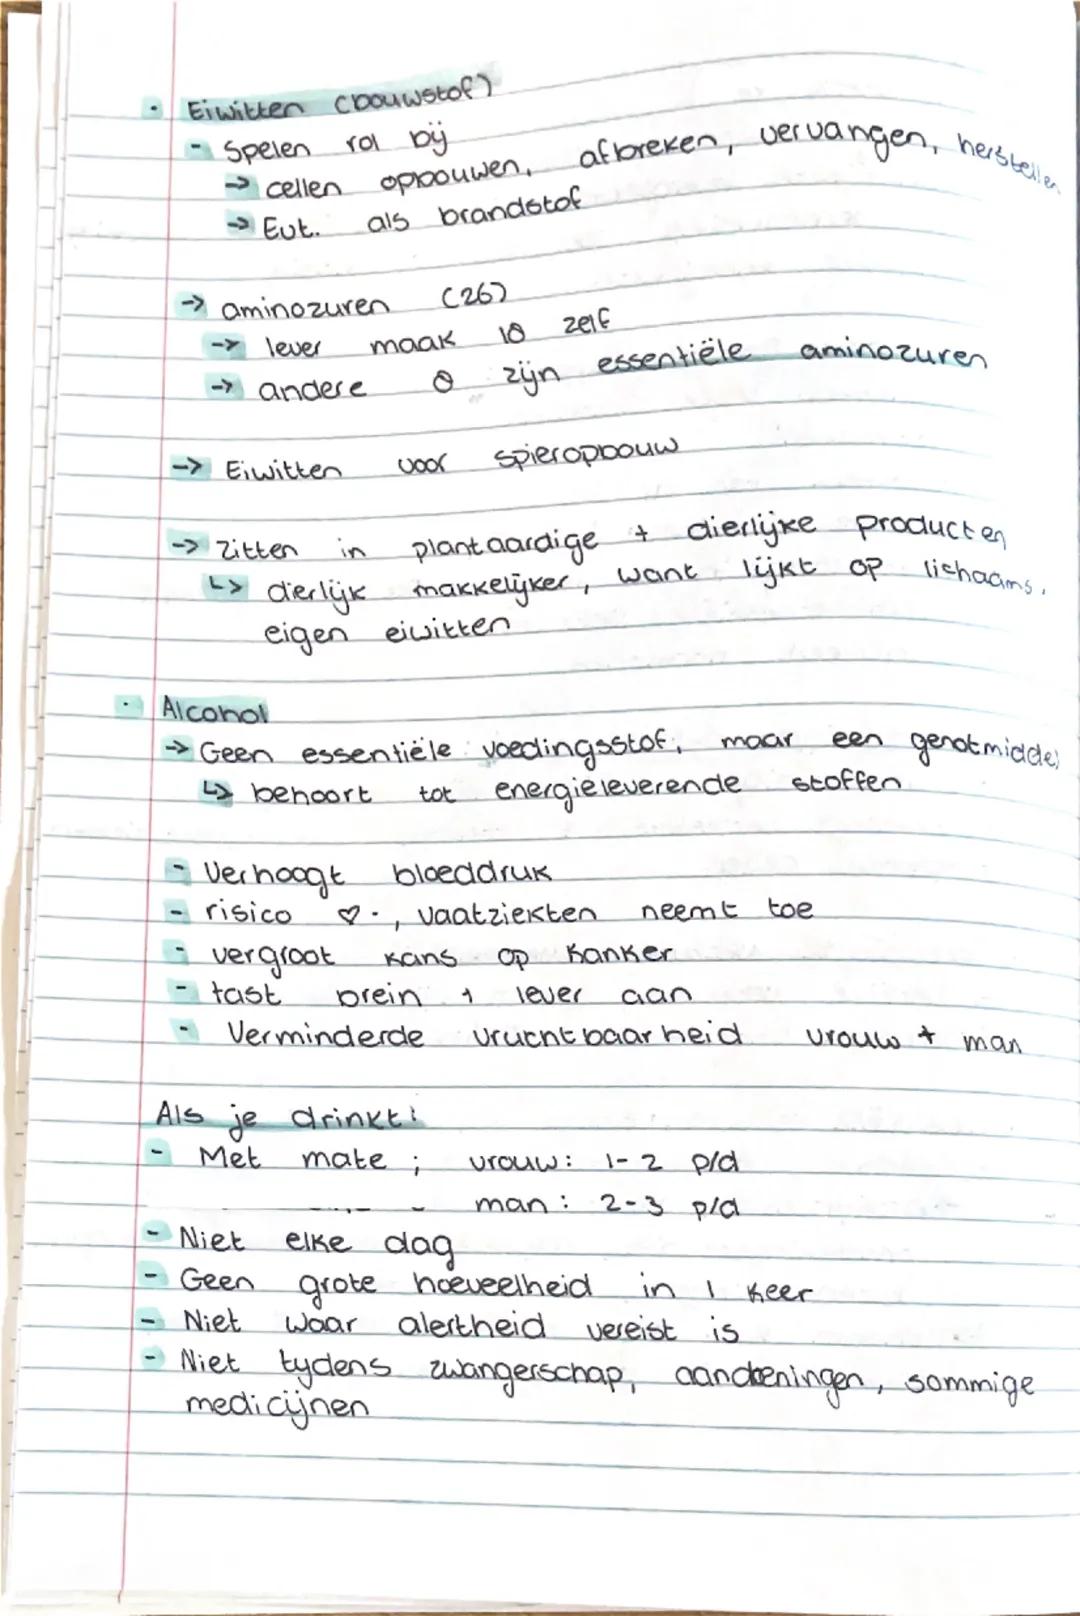 · Eiwitten (bouwstof)
- Spelen rol bij
→ cellen opbouwen, afbreken, vervangen, herstellen
→ Evt. als brandstof
→ aminozuren (26)
→ lever maak 18 zelf
→ andere 8 zijn essentiële aminozuren
→ Eiwitten voor spieropbouw
→ Zitten in plantaardige + dierlijke producten
↳ dierlijk makkelijker, want lijkt op lichaams.
eigen eiwitten
· Alcohol
→ Geen essentiële voedingsstof, maar een genotmiddel
↳ behoort tot energieleverende stoffen
- Verhoogt bloeddruk
- risico ♡ ·, vaatziekten neemt toe
- vergroot kans op kanker
- tast brein + lever aan
- Verminderde vruchtbaarheid vrouw + man
Als je drinkt:
- Met mate ; vrouw: 1-2 p/d
man: 2-3 p/d
- Niet elke dag
- Geen grote hoeveelheid in 1 keer
- Niet waar alertheid vereist is
- Niet tydens zwangerschap, sommige
medicijnen